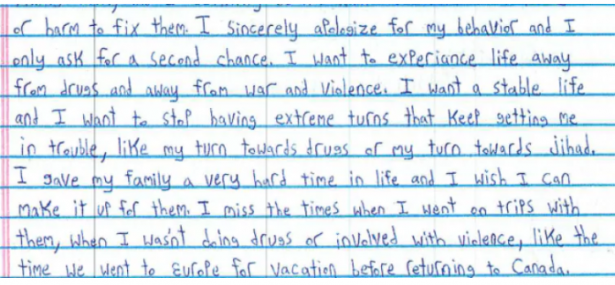 or harm to fix them. I sincerely apologize for my behavior and I
only ask for a second chance. I want to experiance life away
from drugs and away from war and violence. I want a stable life
and I want to stop having extreme turns that keep getting me
in trouble, like my turn towards drugs or my turn towards jihad.
I gave my family a very hard time in life and I wish I can
make it up for them. I miss the times when I went on trips with
them, when I wasn't doing drugs or involved with violence, like the
time we went to Europe for vacation before returning to Canada.